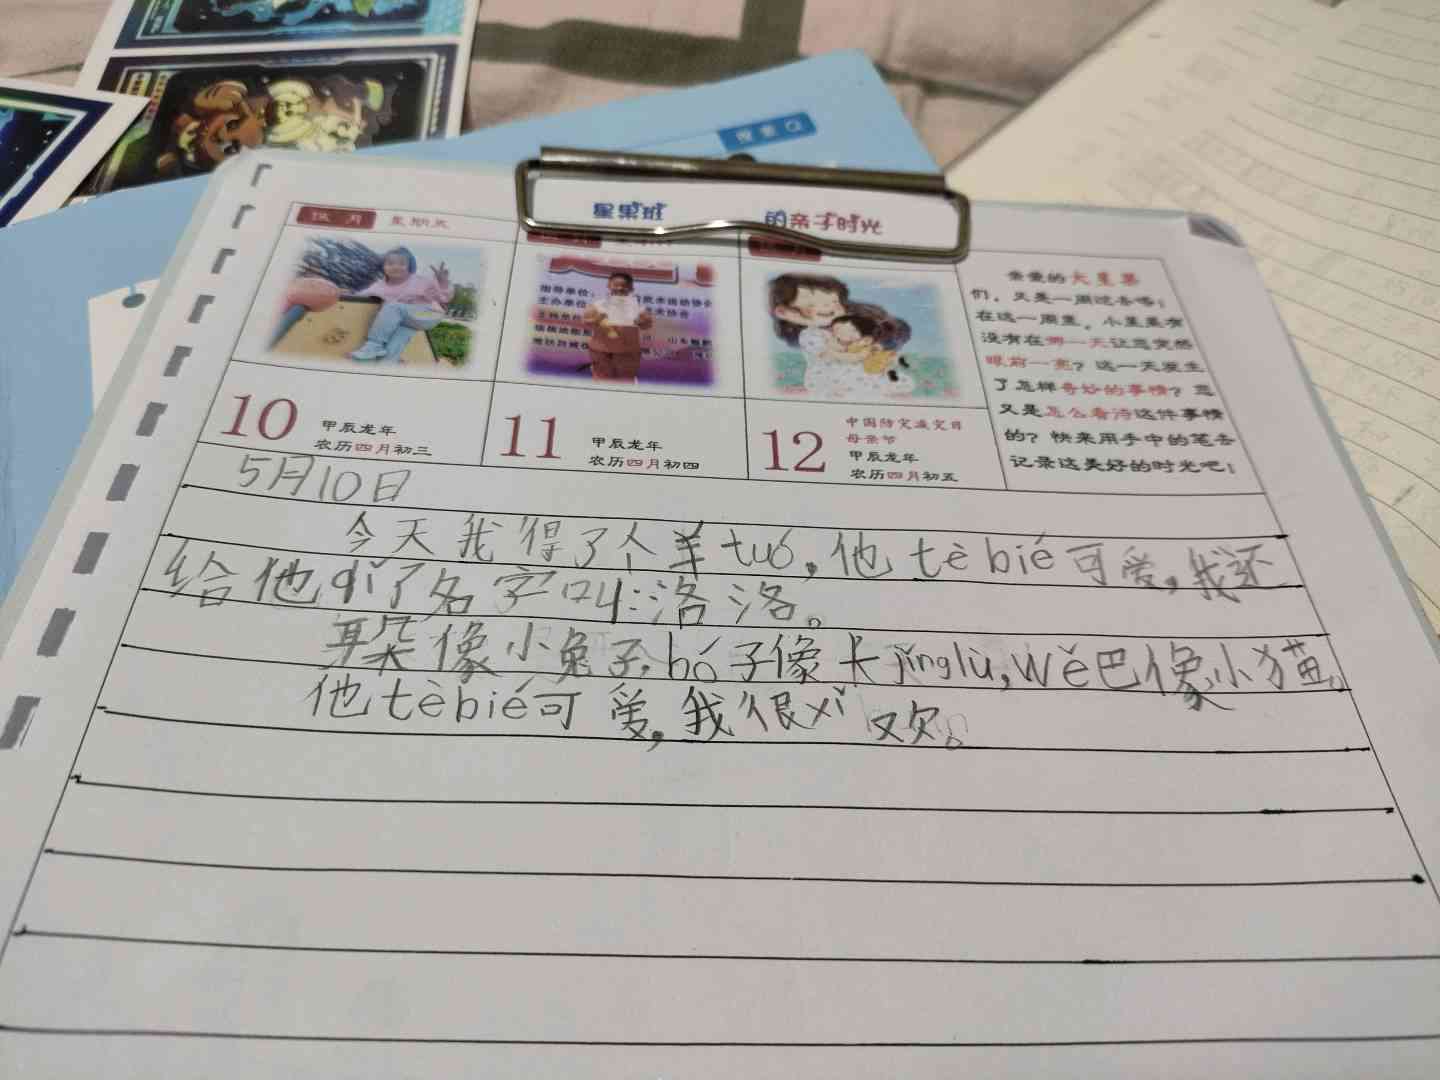 搜索
星果班 的亲子时光
玖月 星期五
指导单位:
主办单位
亲爱的大星果
们,又是一周过去啦!
在这一周里,小星果有
没有在哪一天让您突然
眼前一亮?这一天发生
了怎样奇妙的事情?您
又是怎么看待这件事情
的?快来用手中的笔去
记录这美好的时光吧!
10 甲辰龙年
农历四月初三
11 甲辰龙年
农历四月初四
12 中国防灾减灾日
母亲节
甲辰龙年
农历四月初五
5月10日
今天我得了个羊tuó,他tèbié可爱,我还
给他qǐ了名字叫:洛洛。
耳朵像小兔子,bó子像长jǐnglù,wěi巴像小猫。
他tèbié可爱,我很xǐ欢。